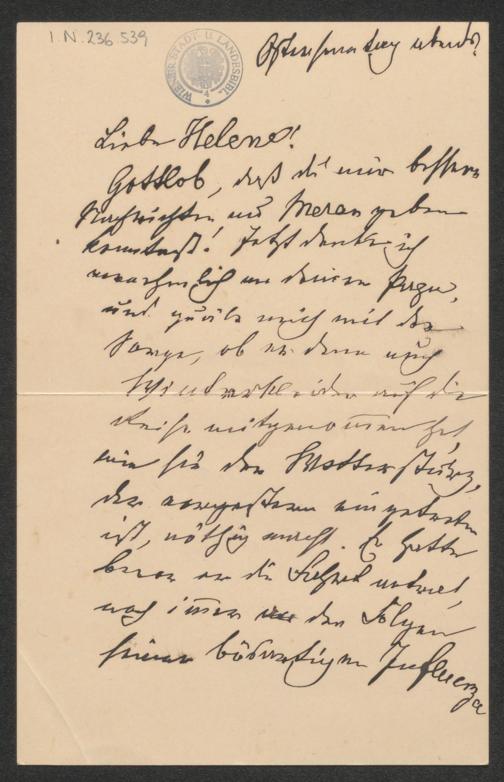 I.N. 236.539
WIENER STADT- U. LANDESBIBL.
Ostersonntag abends.
Liebe Helene!
Gottlob, daß du mir bessere
Nachrichten aus Meran geben
konntest! Jetzt denke ich
unaufhörlich an deinen Papa,
und quäle mich mit der
Sorge, ob er denn auch
Winterkleider auf die
Reise mitgenommen hat,
wie sie der Wettersturz,
der vorgestern eingetreten
ist, nöthig macht. Er hatte
bevor er die Fahrt antrat,
noch immer an den Folgen
seiner bösartigen Influenza